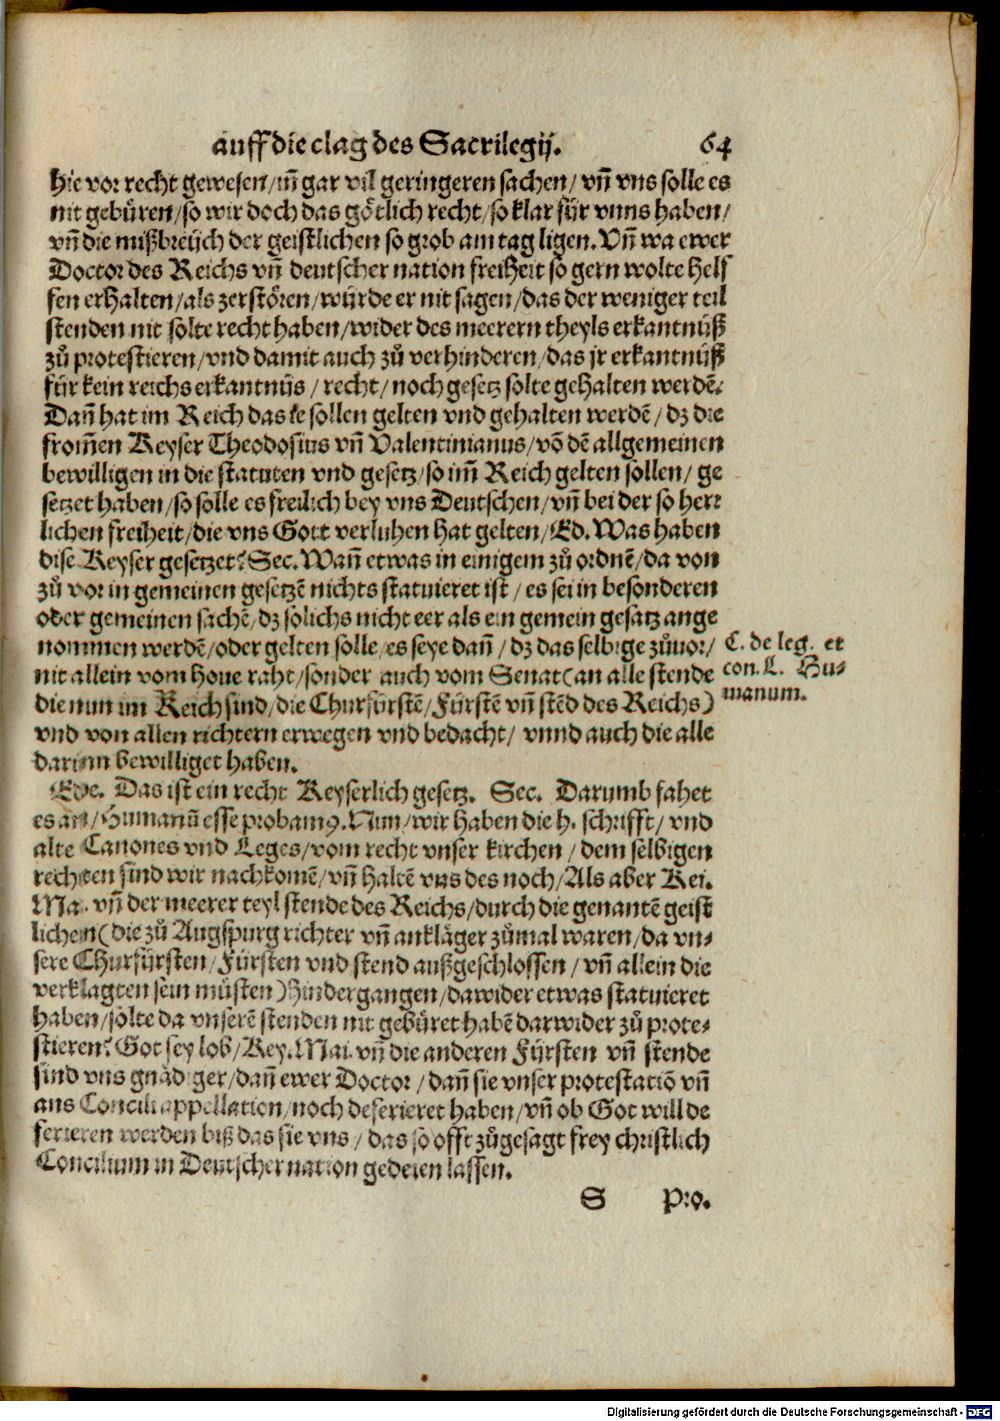 auff die clag des Sacrilegij. 64
hie vor recht gewesen/im̄ gar vil geringeren sachen/ vn̄ vns solle es
nit gebüren/so wir doch das götlich recht/so klar für vnns haben/
vn̄ die mißbreüch der geistlichen so grob am tag ligen. Vn̄ wa ewer
Doctor des Reichs vn̄ deutscher nation freiheit so gern wolte helf
fen erhalten/als zerstören/würde er nit sagen/das der weniger teil
stenden nit solte recht haben/wider des meerern theyls erkantnüß
zů protestieren/vnd damit auch zů verhinderen/das jr erkantnüß
für kein reichs erkantnüs/ recht/ noch gesetz solte gehalten werdē.
Dan̄ hat im Reich das ie sollen gelten vnd gehalten werdē/ dz die
from̄en Keyser Theodosius vn̄ Valentinianus/vō dē allgemeinen
bewilligen in die statuten vnd gesetz/so im̄ Reich gelten sollen/ ge
setzet haben/so solle es freilich bey vns Deutschen/vn̄ bei der so herr
lichen freiheit/die vns Gott verluhen hat gelten/Ed. Was haben
dise Keyser gesetzet? Sec. Wan̄ etwas in einigem zů ordnē/da von
zů vor in gemeinen gesetzē nichts statuieret ist/ es sei in besonderen
oder gemeinen sachē/dz solichs nicht eer als ein gemein gesatz ange
nommen werdē/oder gelten solle/es seye dan̄/ dz das selbige zůuor/
C. de leg. et
nit allein vom houe raht/sonder auch vom Senat(an alle stende
con. L. Hu-
die nun im Reich sind/die Churfürstē/Fürstē vn̄ stēd des Reichs)
manum.
vnd von allen richtern erwegen vnd bedacht/ vnnd auch die alle
darinn bewilliget haben.
Ede. Das ist ein recht Keyserlich gesetz. Sec. Darumb fahet
es an/Humanū esse probamꝰ. Nun/wir haben die h. schrifft/ vnd
alte Canones vnd Leges/vom recht vnser kirchen/ dem selbigen
rechten sind wir nachkomē/vn̄ haltē vns des noch/Als aber Kei.
Ma. vn̄ der meerer teyl stende des Reichs/durch die genantē geist
lichen(die zů Augspurg richter vn̄ ankläger zůmal waren/da vn-
sere Churfürsten/Fürsten vnd stend außgeschlossen/ vn̄ allein die
verklagten sein müsten)hindergangen/dawider etwas statuieret
haben/solte da vnserē stenden nit gebüret habē darwider zů prote-
stieren? Got sey lob/Key. Mai. vn̄ die anderen Fürsten vn̄ stende
sind vns gnädiger/dan̄ ewer Doctor/ dan̄ sie vnser protestatiō vn̄
ans Concili appellation/noch deferieret haben/vn̄ ob Got will de
ferieren werden biß das sie vns/ das so offt zůgesagt frey christlich
Concilium in Deutscher nation gedeien lassen.
S Pro.
Digitalisierung gefördert durch die Deutsche Forschungsgemeinschaft - DFG